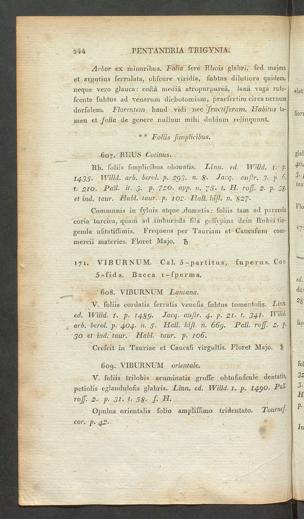 244 PENTANDRIA TRIGYNIA.
Arbor ex minoribus. Folia fere Rhois glabri, sed majora
et argutius serrulata, obscure viridia, subtus dilutiora quidem,
neque vero glauca: costa media atropurpurea, lana vaga rufe-
scente subtus ad venarum dichotomiam, praesertim circa nervum
dorsalem. Florentem haud vidi nec fructiferam. Habitus ta-
men et folia de genere nullum mihi dubium relinquunt.
** Foliis simplicibus.
607. RHUS Cotinus.
Rh. foliis simplicibus obovatis. Linn. ed. Willd. 1. p.
1435. Willd. arb. berol. p. 293. n. 8. Jacq. austr. 3. p. 6.
t. 210. Pall. it. 3. p. 720. app. n. 78. t. H. ross. 2. p. 38
et ind. taur. Habl. taur. p. 102. Hall. hist. n. 827.
Communis in sylvis atque dumetis; foliis tam ad paranda
coria tarcica, quam ad imbuenda fila gossypina dein Rubia tin-
genda usitatissimis. Frequens per Tauriam et Caucasum com-
mercii materies. Floret Majo. ♄
171. VIBURNUM. Cal. 5-partitus, superus. Cor.
5-fida. Bacca 1-sperma.
608. VIBURNUM Lantana.
V. foliis cordatis serratis venosis subtus tomentosis. Linn.
ed. Willd. 1. p. 1489. Jacq. austr. 4. p. 21. t. 341. Willd.
arb. berol. p. 404. n. 5. Hall. hist. n. 669. Pall. ross. 2. p.
30 et ind. taur. Habl. taur. p. 106.
Crescit in Tauriae et Caucasi virgultis. Floret Majo. ♄
609. VIBURNUM orientale.
V. foliis trilobis acuminatis grosse obtusiuscule dentatis,
petiolis eglandulosis glabris. Linn. ed. Willd. 1. p. 1490. Pall.
ross. 2. p. 31. t. 58. f. H.
Opulus orientalis folio amplissimo tridentato. Tournef.
cor. p. 42.